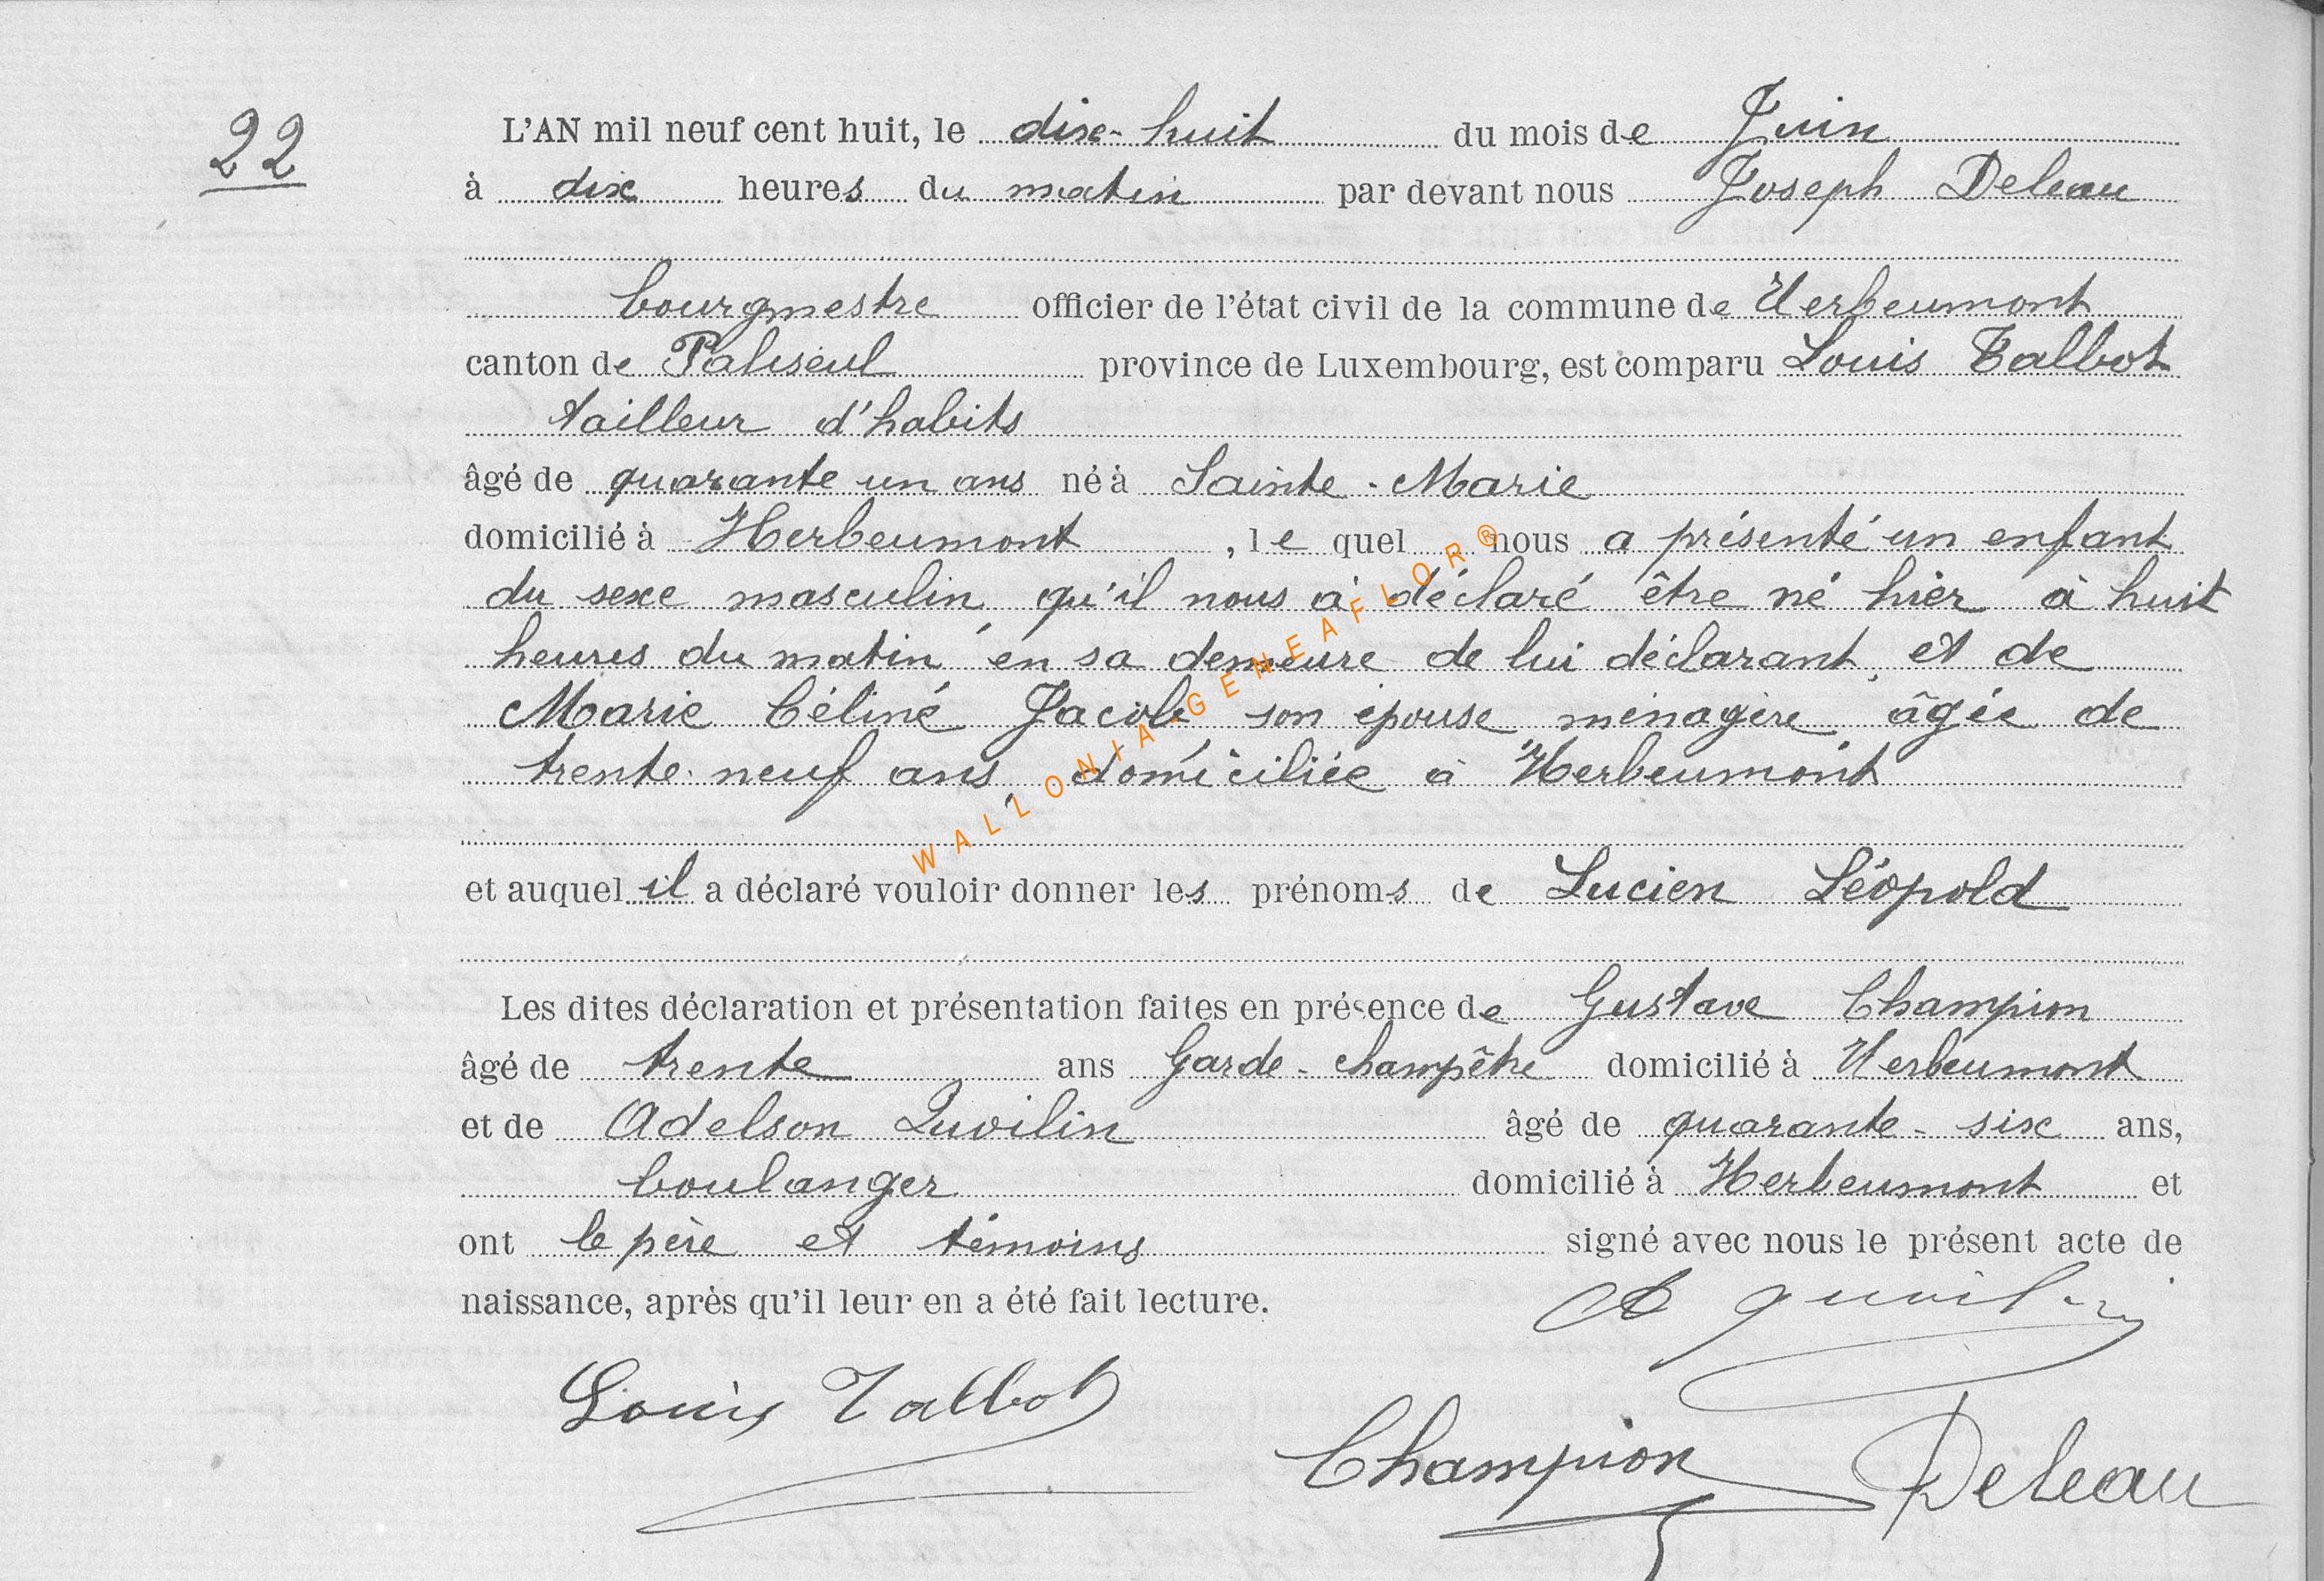 22
L'AN mil neuf cent huit, le dix-huit du mois de Juin
à dix heures du matin par devant nous Joseph Deleau
bourgmestre officier de l'état civil de la commune de Herbeumont
canton de Paliseul province de Luxembourg, est comparu Louis Talbot
tailleur d'habits
âgé de quarante un ans né à Sainte-Marie
domicilié à Herbeumont, le quel nous a présenté un enfant
du sexe masculin, qu'il nous a déclaré être né hier à huit
heures du matin en sa demeure de lui déclarant, et de
Marie Céline Jacob son épouse ménagère âgée de
trente-neuf ans, domiciliée à Herbeumont
WALLONIA GENEAFLOR®
et auquel il a déclaré vouloir donner les prénoms de Lucien Léopold
Les dites déclaration et présentation faites en présence de Gustave Champion
âgé de trente ans Garde-champêtre domicilié à Herbeumont
et de Adelson Quoilin âgé de quarante-six ans,
boulanger domicilié à Herbeumont et
ont le père et témoins signé avec nous le présent acte de
naissance, après qu'il leur en a été fait lecture.
A Quoilin
Louis Talbot
Champion Deleau